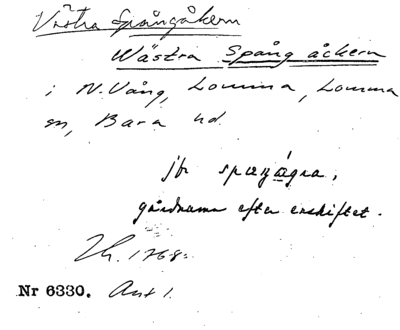 Västra Spångåkern
Wästra Spång åckern
i N. Vång, Lomma, Lomma
sn, Bara hd
jfr
gårdnamn efter enskiftet.
1768.
Nr 6330. Akt 1.